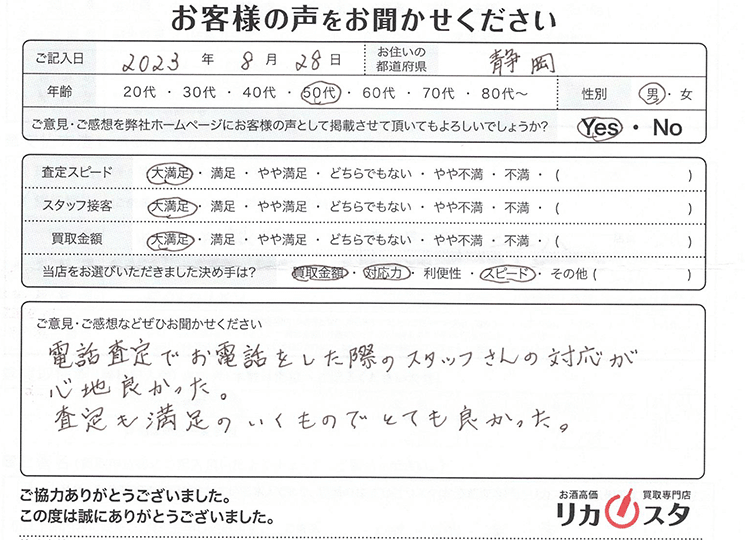 お客様の声をお聞かせください
ご記入日 2023 年 8 月 28 日 お住いの都道府県 静岡
年齢 20代 ・ 30代 ・ 40代 ・ 50代 ・ 60代 ・ 70代 ・ 80代〜 性別 男 ・ 女
ご意見・ご感想を弊社ホームページにお客様の声として掲載させて頂いてもよろしいでしょうか? Yes ・ No
査定スピード 大満足 ・ 満足 ・ やや満足 ・ どちらでもない ・ やや不満 ・ 不満 ・ ( )
スタッフ接客 大満足 ・ 満足 ・ やや満足 ・ どちらでもない ・ やや不満 ・ 不満 ・ ( )
買取金額 大満足 ・ 満足 ・ やや満足 ・ どちらでもない ・ やや不満 ・ 不満 ・ ( )
当店をお選びいただきました決め手は? 買取金額 ・ 対応力 ・ 利便性 ・ スピード ・ その他 ( )
ご意見・ご感想などぜひお聞かせください
電話査定でお電話をした際のスタッフさんの対応が
心地良かった。
査定も満足のいくものでとても良かった。
ご協力ありがとうございました。
この度は誠にありがとうございました。
お酒高価 買取専門店
リカスタ